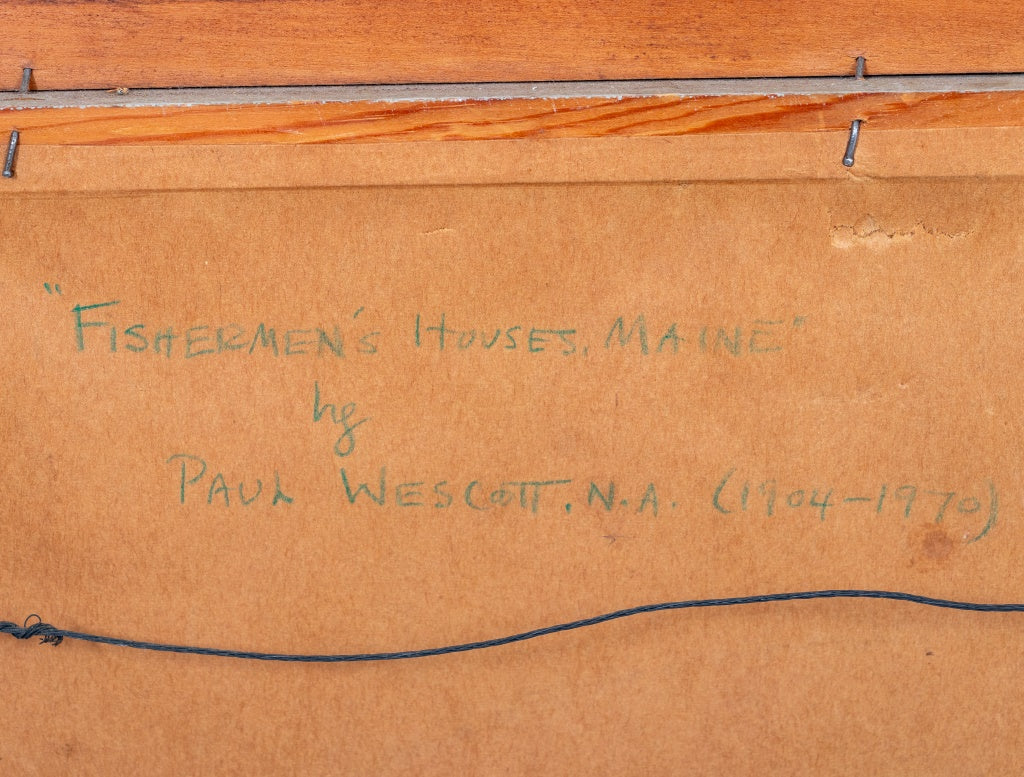 "FISHERMEN'S HOUSES, MAINE"
by
PAUL WESCOTT, N.A. (1904-1970)